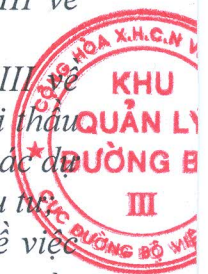 III về
III về
i thầu
ác dự
u tư;
ề việc
CỘNG HÒA X.H.C.N V
KHU
QUẢN L
ĐƯỜNG B
III
CỤC ĐƯỜNG BỘ VIỆ